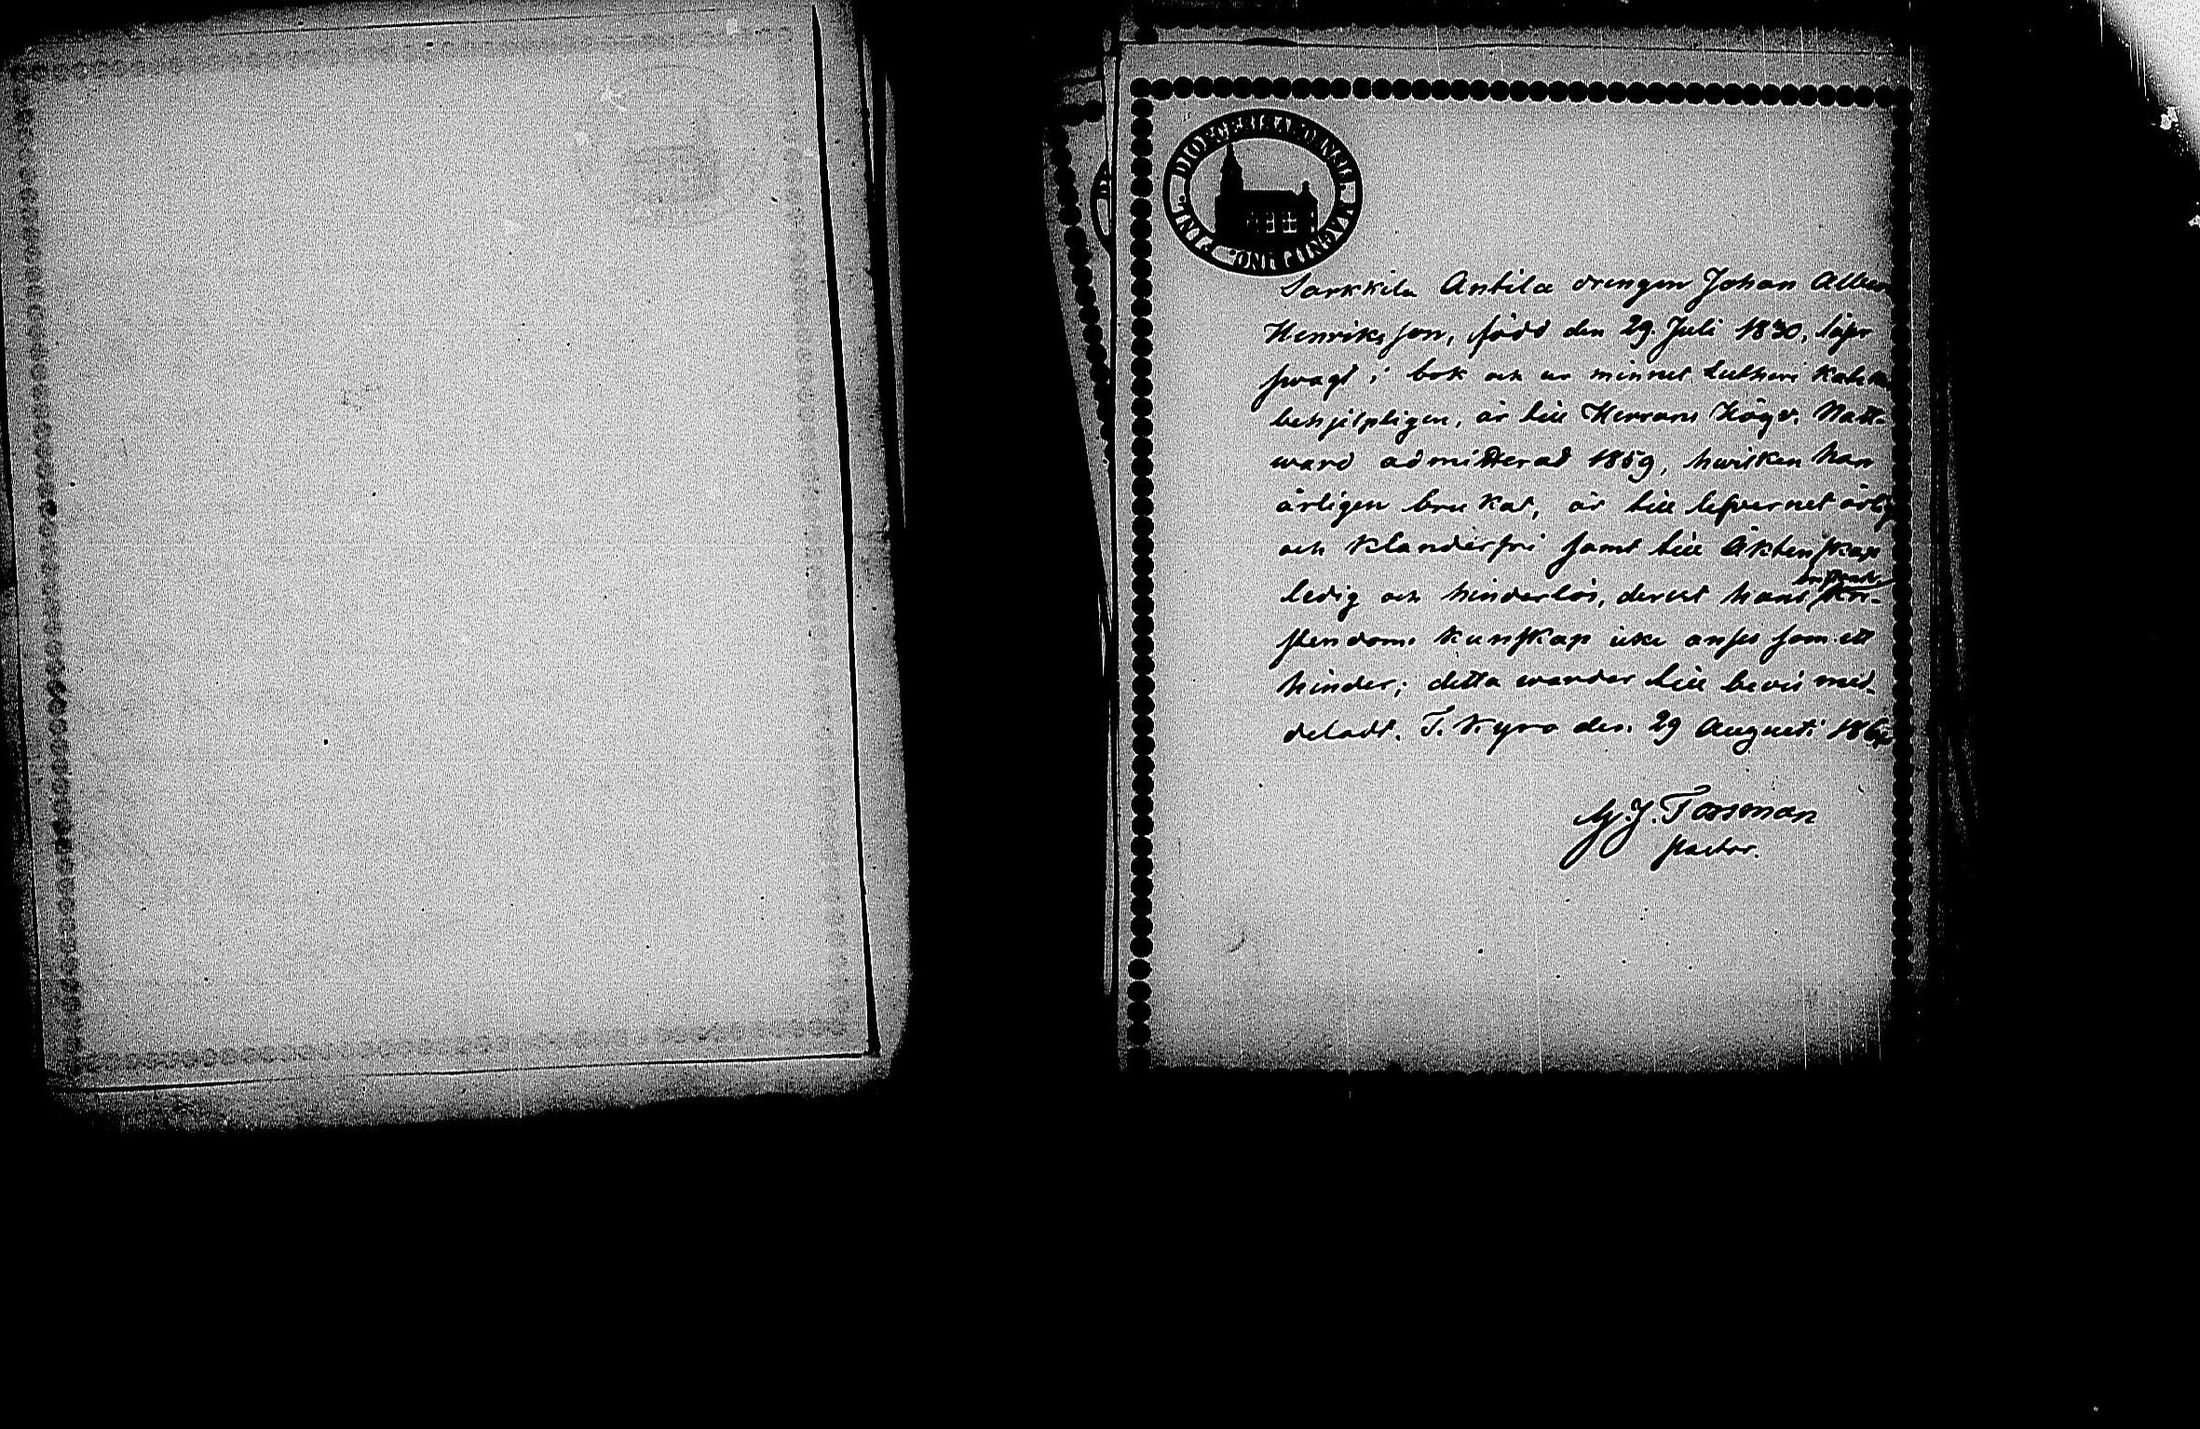 DIOECESIS ABOENSIS. MAGNI PRINC. FINL.
Sarkkila Antila drengen Johan Albert
Henriksson, född den 29. Juli 1830, läser
swagt i bok och ur minnet Lutheri
behjelpligen, är till Herrans Högv. Natt-
ward admitterad 1859, hwilken han
årligen brukat, är till lefvernet ärlig
och klanderfri samt till Äktenskap
ledig och hinderlös, derest hans kri-
stendoms kunskap icke anses som ett
hinder; detta warder till bevis med-
deladt. T. Kyro den 29 Augusti
J. Forsman
Pastor.